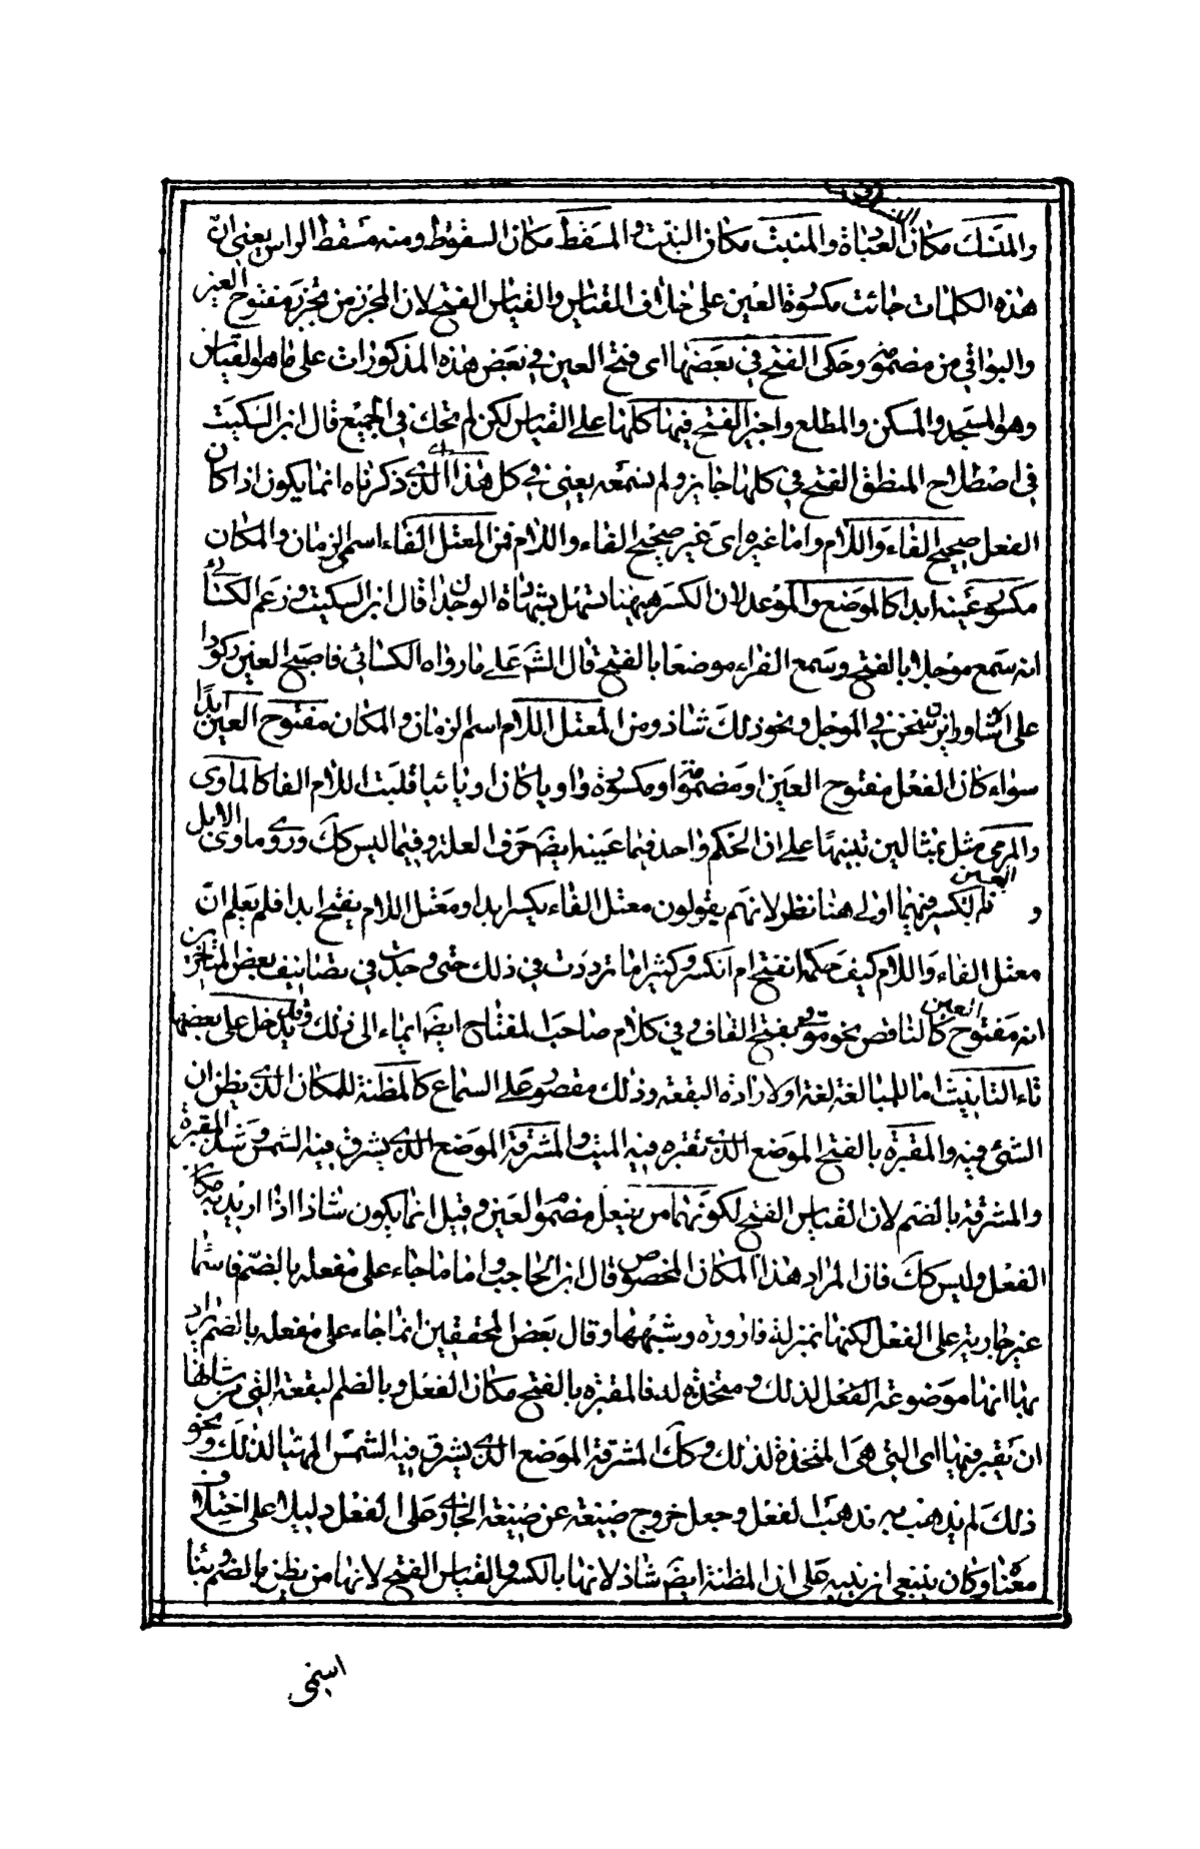 والمنسك مكان العبادة والمنبت مكان النبت والمسقط مكان السقوط ومنه مسقط الراس يعنى انّ
هذه الكلمات جائت مكسورة العين على خلاف القياس والقياس الفتح لان المجزر من يجزر مفتوح العين
والبواقى من مضمومه وحكى الفتح فى بعضها اى فتح العين فى بعض هذه المذكورات على ما هو القياس
وهو المسجد والمسكن والمطلع واجيز الفتح فيها كلها على القياس لكن لم يحك فى الجميع قال ابن السكيت
فى اصطلاح المنطق الفتح فى كلها جايز ولم نسمعه يعنى فى كل هذا الذى ذكرناه انما يكون اذا كان
الفعل صحيح الفاء واللام واما غيره اى غير صحيح الفاء واللام فمن المعتل الفاء اسم الزمان والمكان
مكسور عينه ابدا كالموضع والموعد لان الكسر ههنا اسهل بشهادة الوجدان قال ابن السكيت وزعم الكسائى
انه سمع موجلا بالفتح وسمع الفراء موضعا بالفتح قال الشم على ما رواه الكسائى فاصبح العين ركودا
على اوشاو ان يرسخن فى الموجل ونحو ذلك شاذ ومن المعتل اللام اسم الزمان والمكان مفتوح العين ابدًا
سواء كان الفعل مفتوح العين او مضمومه او مكسوره واويا كان او يائيا قلبت اللام الفا كالماوى
والمرمى مثل بمثالين تنبيها على ان الحكم واحد فيما عينه ايضَ حرف العلة وفيما ليس كك وروى ماوى الابل
و العين فلم لكسر فيهما اولى هنا نظر لانهم يقولون معتل الفاء يكسر ابدا ومعتل اللام يفتح ابدا فلم يعلم انّ
معتل الفاء واللام كيف حكمه انفتح ام انكسر وكثيرا ما ترددت فى ذلك حتى وجدت فى تصانيف بعض المتاخرين
انه مفتوح العين كالناقص نحو موقى بفتح القاف وفى كلام صاحب المفتاح ايضَ ايماء الى ذلك وقد يدخل على بعضها
تاء التانيث اما للمبالغة او لارادة البقعة وذلك مقصور على السماع كالمظنة للمكان الذى يظن ان
الشئ فيه والمقبرة بالفتح الموضع الذى يقبره فيه الميت والمشرقة الموضع الذى يشرق فيه الشمس وشذ المقبرة
والمشرقة بالضم لان القياس الفتح لكونهما من يفعل مضموم العين وقيل انما يكون شاذا اذا اريد به مكان
الفعل وليس كك فان المراد هذا المكان المخصوص قال ابن الحاجب واما ما جاء على مفعله بالضم فاسما
غير جارية على الفعل لكنها بمنزلة قارورة وشبهها وقال بعض المحققين انما جاء على مفعله بالضم يراد
بها انها موضوعة الفعل لذلك ومتخذه له فالمقبرة بالفتح مكان الفعل وبالضم البقعة التى من شانها
ان يقبر فيها اى التى هى المتخذة لذلك وكك المشرقة الموضع الذى يشرق فيه الشمس المهيا لذلك ونحو
ذلك لم يذهب به مذهب الفعل وجعل خروج صيغته عن صيغة الجارى على الفعل دليلا على اختلاف
معناه وكان ينبغى ان ينبه على ان المظنة ايضَ شاذ لانها بالكسر والقياس الفتح لانها من يظن بالضم وبنا
اسنمى